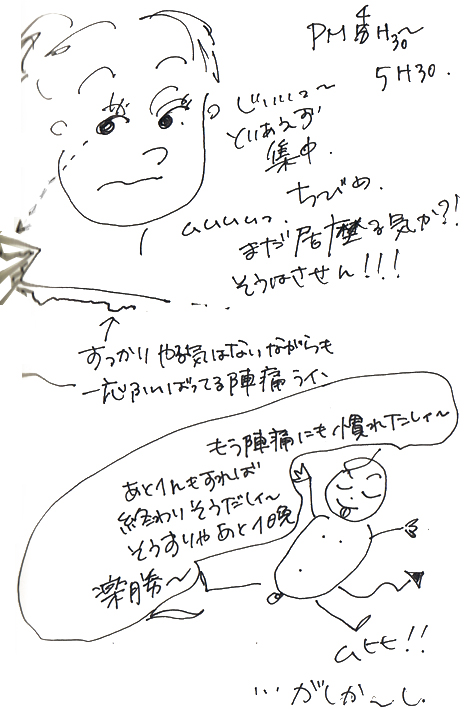 PM 4H30〜
5H30.
じいいいっ〜
とりあえず
集中.
ちびめ.
むいいいっ.
まだ居座る気か?!
そうはさせん!!!
すっかりやる気はないながらも
一応ふんばってる陣痛ライン
もう陣痛にも慣れたしィ〜
あと1人もすれば
終わりそうだしィ〜
そうすりゃあと1晩
楽勝〜
ઘヒヒ!!
…がしか〜し.